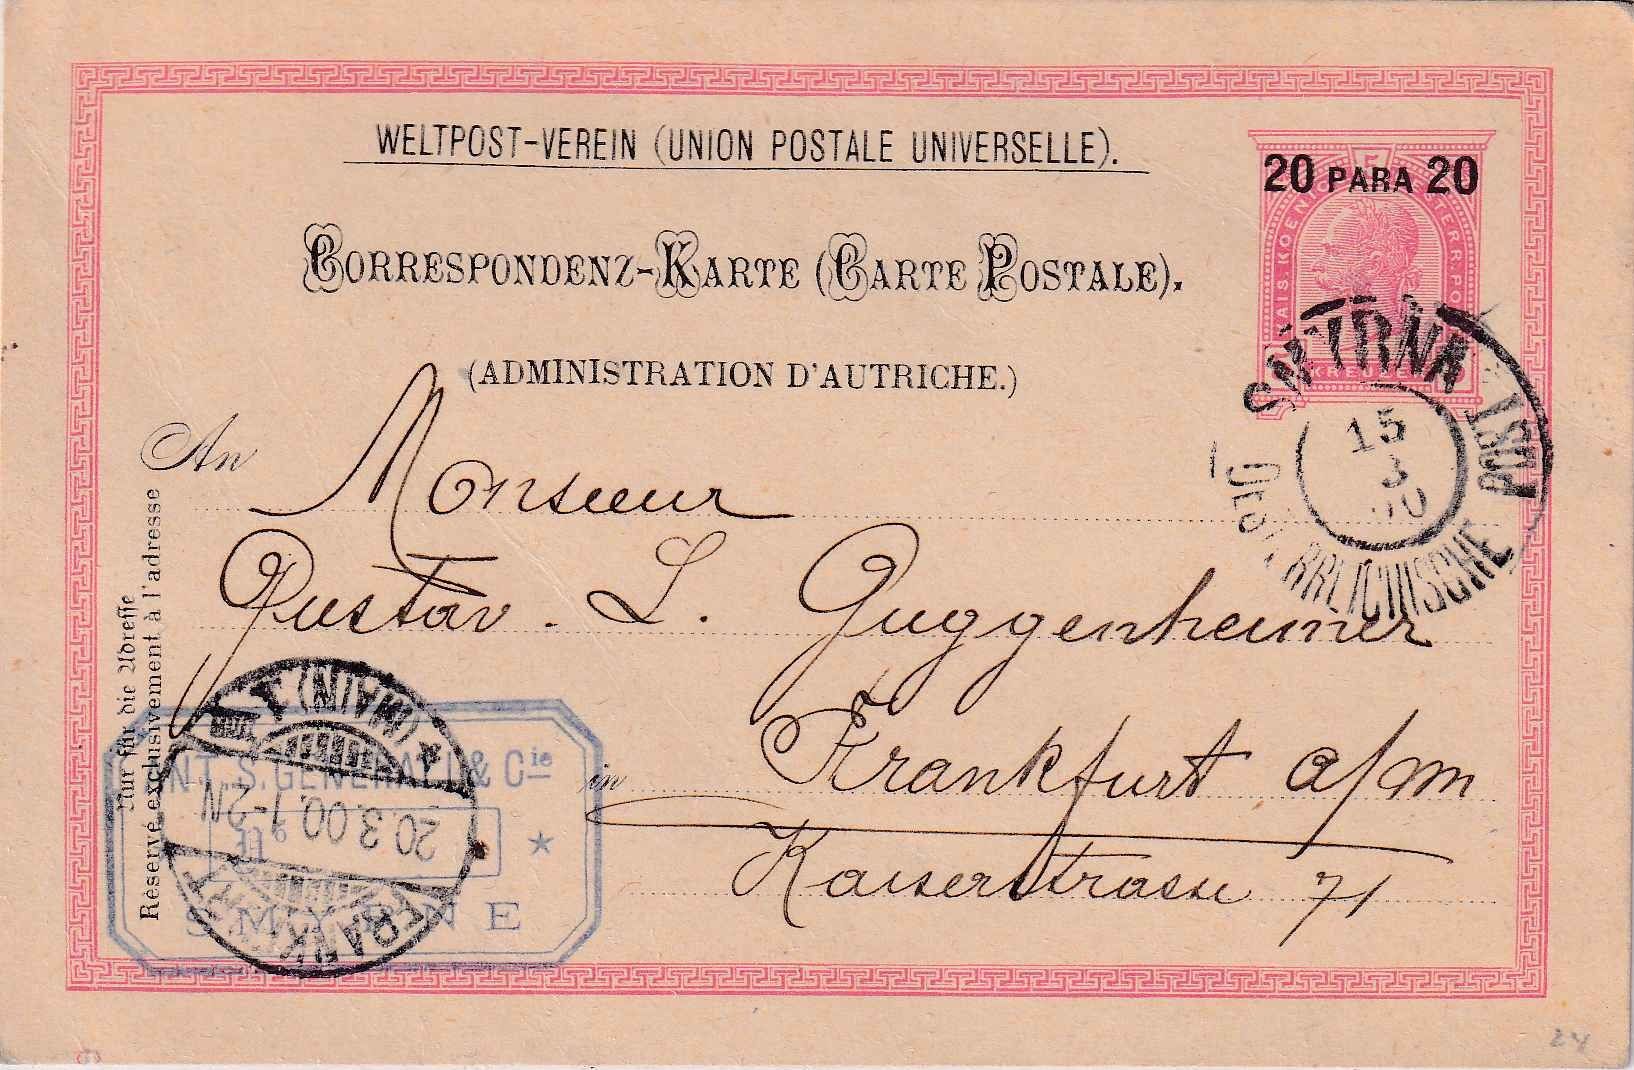 WELTPOST-VEREIN (UNION POSTALE UNIVERSELLE).
20 PARA 20
CORRESPONDENZ-KARTE (CARTE POSTALE).
(ADMINISTRATION D'AUTRICHE.)
SMYRNA
15
3
POST
An Monsieur
Gustav. L. Guggenheimer
in Frankfurt a/m
Kaiserstrasse 71
Nur für die Adresse
Réservé exclusivement à l'adresse
(MAIN) 1
20.3.00.1-2N
S. GENERALI & Cie
SMYRNE
24